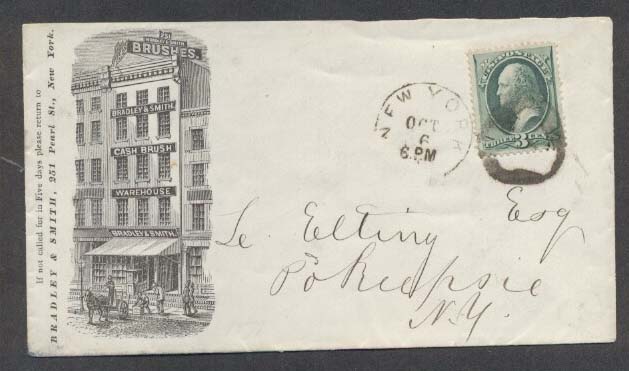 If not called for in Five days please return to
BRADLEY & SMITH, 251 Pearl St., New York.
251
BRADLEY & SMITH
BRUSHES.
BRADLEY & SMITH
CASH BRUSH
WAREHOUSE
BRADLEY & SMITH.
NEW YORK
OCT
6
6 PM
U.S. POSTAGE
THREE 3 CENTS
Le Elting Esq
Pokeepsie
N.Y.